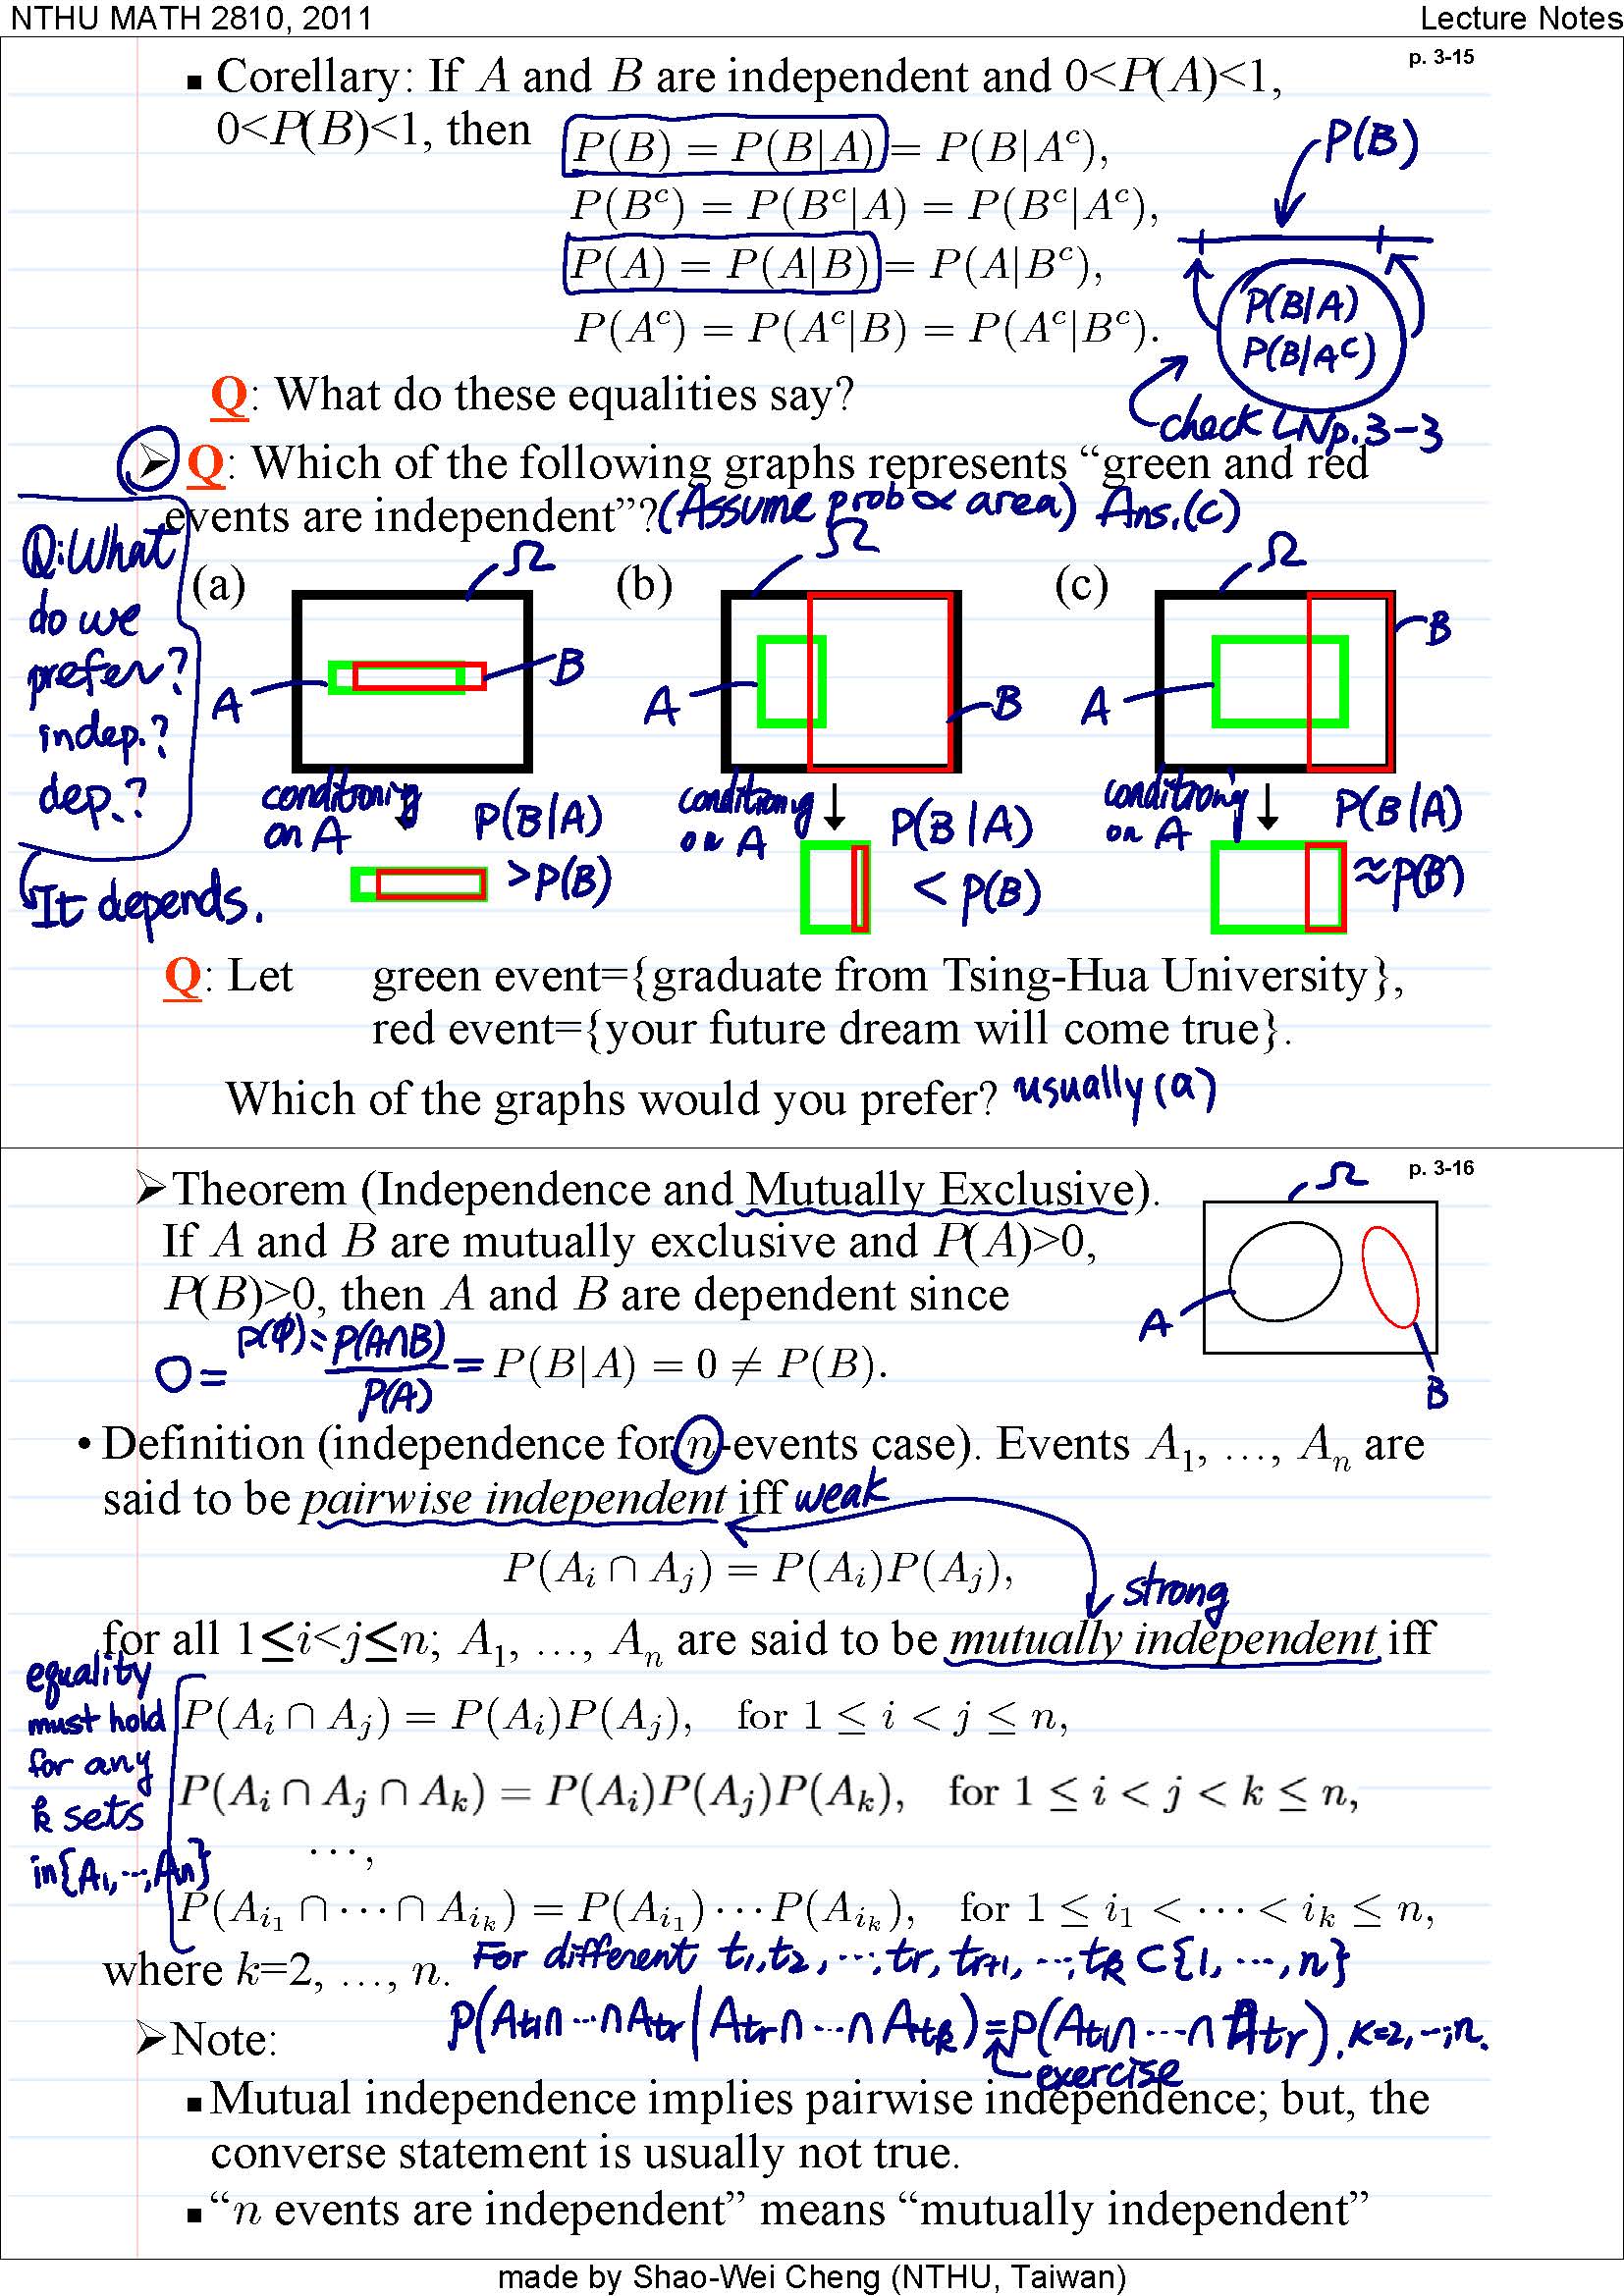 NTHU MATH 2810, 2011 Lecture Notes
p. 3-15
▪ Corellary: If A and B are independent and 0<P(A)<1,
0<P(B)<1, then
P(B) = P(B|A) = P(B|Aᶜ),
P(Bᶜ) = P(Bᶜ|A) = P(Bᶜ|Aᶜ),
P(A) = P(A|B) = P(A|Bᶜ),
P(Aᶜ) = P(Aᶜ|B) = P(Aᶜ|Bᶜ).
P(B)
P(B|A)
P(B|Aᶜ)
check LNp.3-3
Q: What do these equalities say?
➢ Q: Which of the following graphs represents “green and red
events are independent”? (Assume prob ∝ area) Ans.(c)
Q: What
do we
prefer?
indep.?
dep.?
It depends.
(a) Ω
A B
conditioning
on A
P(B|A)
>P(B)
(b) Ω
A B
conditioning
on A
P(B|A)
< P(B)
(c) Ω
A B
conditioning
on A
P(B|A)
≈P(B)
Q: Let green event={graduate from Tsing-Hua University},
red event={your future dream will come true}.
Which of the graphs would you prefer? usually (a)
p. 3-16
➢Theorem (Independence and Mutually Exclusive).
If A and B are mutually exclusive and P(A)>0,
P(B)>0, then A and B are dependent since
Ω
A
B
0 = P(∅)= P(A∩B)
P(A)
= P(B|A) = 0 ≠ P(B).
• Definition (independence for n-events case). Events A₁, …, Aₙ are
said to be pairwise independent iff weak
P(Aᵢ ∩ Aⱼ) = P(Aᵢ)P(Aⱼ),
strong
for all 1≤i<j≤n; A₁, …, Aₙ are said to be mutually independent iff
equality
must hold
for any
k sets
in{A₁,…,Aₙ}
P(Aᵢ ∩ Aⱼ) = P(Aᵢ)P(Aⱼ), for 1 ≤ i < j ≤ n,
P(Aᵢ ∩ Aⱼ ∩ Aₖ) = P(Aᵢ)P(Aⱼ)P(Aₖ), for 1 ≤ i < j < k ≤ n,
⋯,
P(A_{i₁} ∩ ⋯ ∩ A_{iₖ}) = P(A_{i₁}) ⋯ P(A_{iₖ}), for 1 ≤ i₁ < ⋯ < iₖ ≤ n,
where k=2, …, n.
For different t₁,t₂,…,tᵣ,tᵣ₊₁,…,tₖ ⊂{1,…,n}
P(A_{t₁}∩⋯∩A_{tᵣ}|A_{tᵣ}∩⋯∩A_{tₖ})=P(A_{t₁}∩⋯∩A_{tᵣ}). k=2,…,n.
exercise
➢Note:
▪ Mutual independence implies pairwise independence; but, the
converse statement is usually not true.
▪ “n events are independent” means “mutually independent”
made by Shao-Wei Cheng (NTHU, Taiwan)